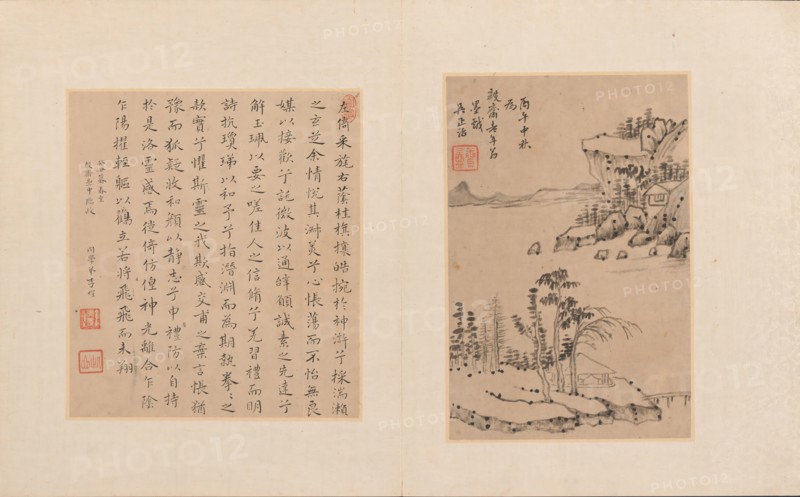 丙午中秋
為
毅齋老年翁
吳正治
左倚采旄右蔭桂旗攘皓捥於神滸兮採湍瀨
之玄芝余情悅其淑美兮心悵蕩而不怡無良
媒以接歡兮託微波以通辭願誠素之先達兮
解玉珮以要之嗟佳人之信脩兮羌習禮而明
詩抗瓊珶以和予兮指潛淵而為期執拳〻之
款實兮懼斯靈之我欺感交甫之棄言悵猶
豫而狐疑收和顏以靜志兮申禮防以自持
於是洛靈感焉徙倚仿偟神光離合乍陰
乍陽擢輕軀以鶴立若將飛飛而未翔
PHOTO12